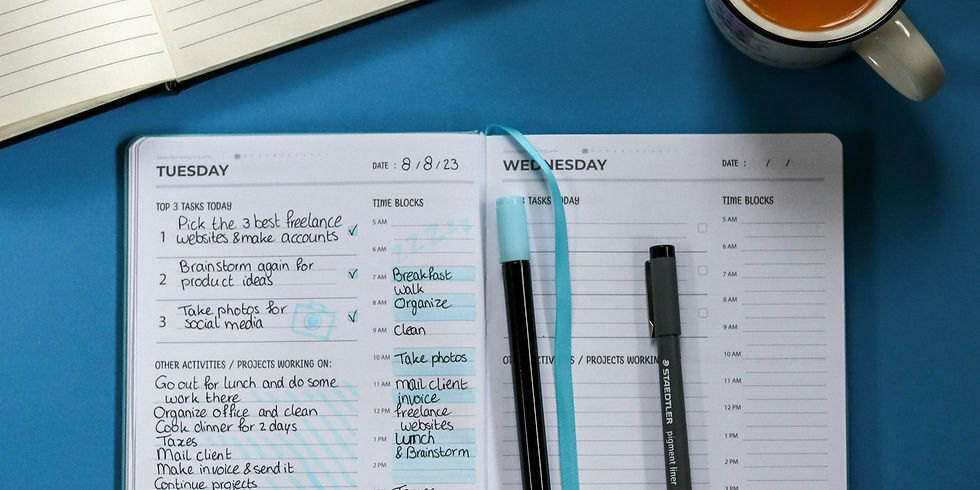 TUESDAY
DATE : 8/8/23
TOP 3 TASKS TODAY
1 Pick the 3 best freelance
websites & make accounts
2 Brainstorm again for
product ideas
3 Take photos for
social media
OTHER ACTIVITIES / PROJECTS WORKING ON:
Go out for lunch and do some
work there
Organize office and clean
Cook dinner for 2 days
Taxes
Mail client
Make invoice & send it
Continue projects
TIME BLOCKS
5 AM zzzzz
6 AM
7 AM Breakfast
walk
8 AM Organize
9 AM Clean
10 AM Take photos
11 AM Mail client
invoice
12 PM freelance
websites
1 PM Lunch
& Brainstorm
2 PM
WEDNESDAY
DATE : / /
3 TASKS
TIME BLOCKS
5 AM
6 AM
7 AM
8 AM
9 AM
10 AM
11 AM
12 PM
1 PM
2 PM
3 PM
/ PROJECTS
STAEDTLER pigment liner